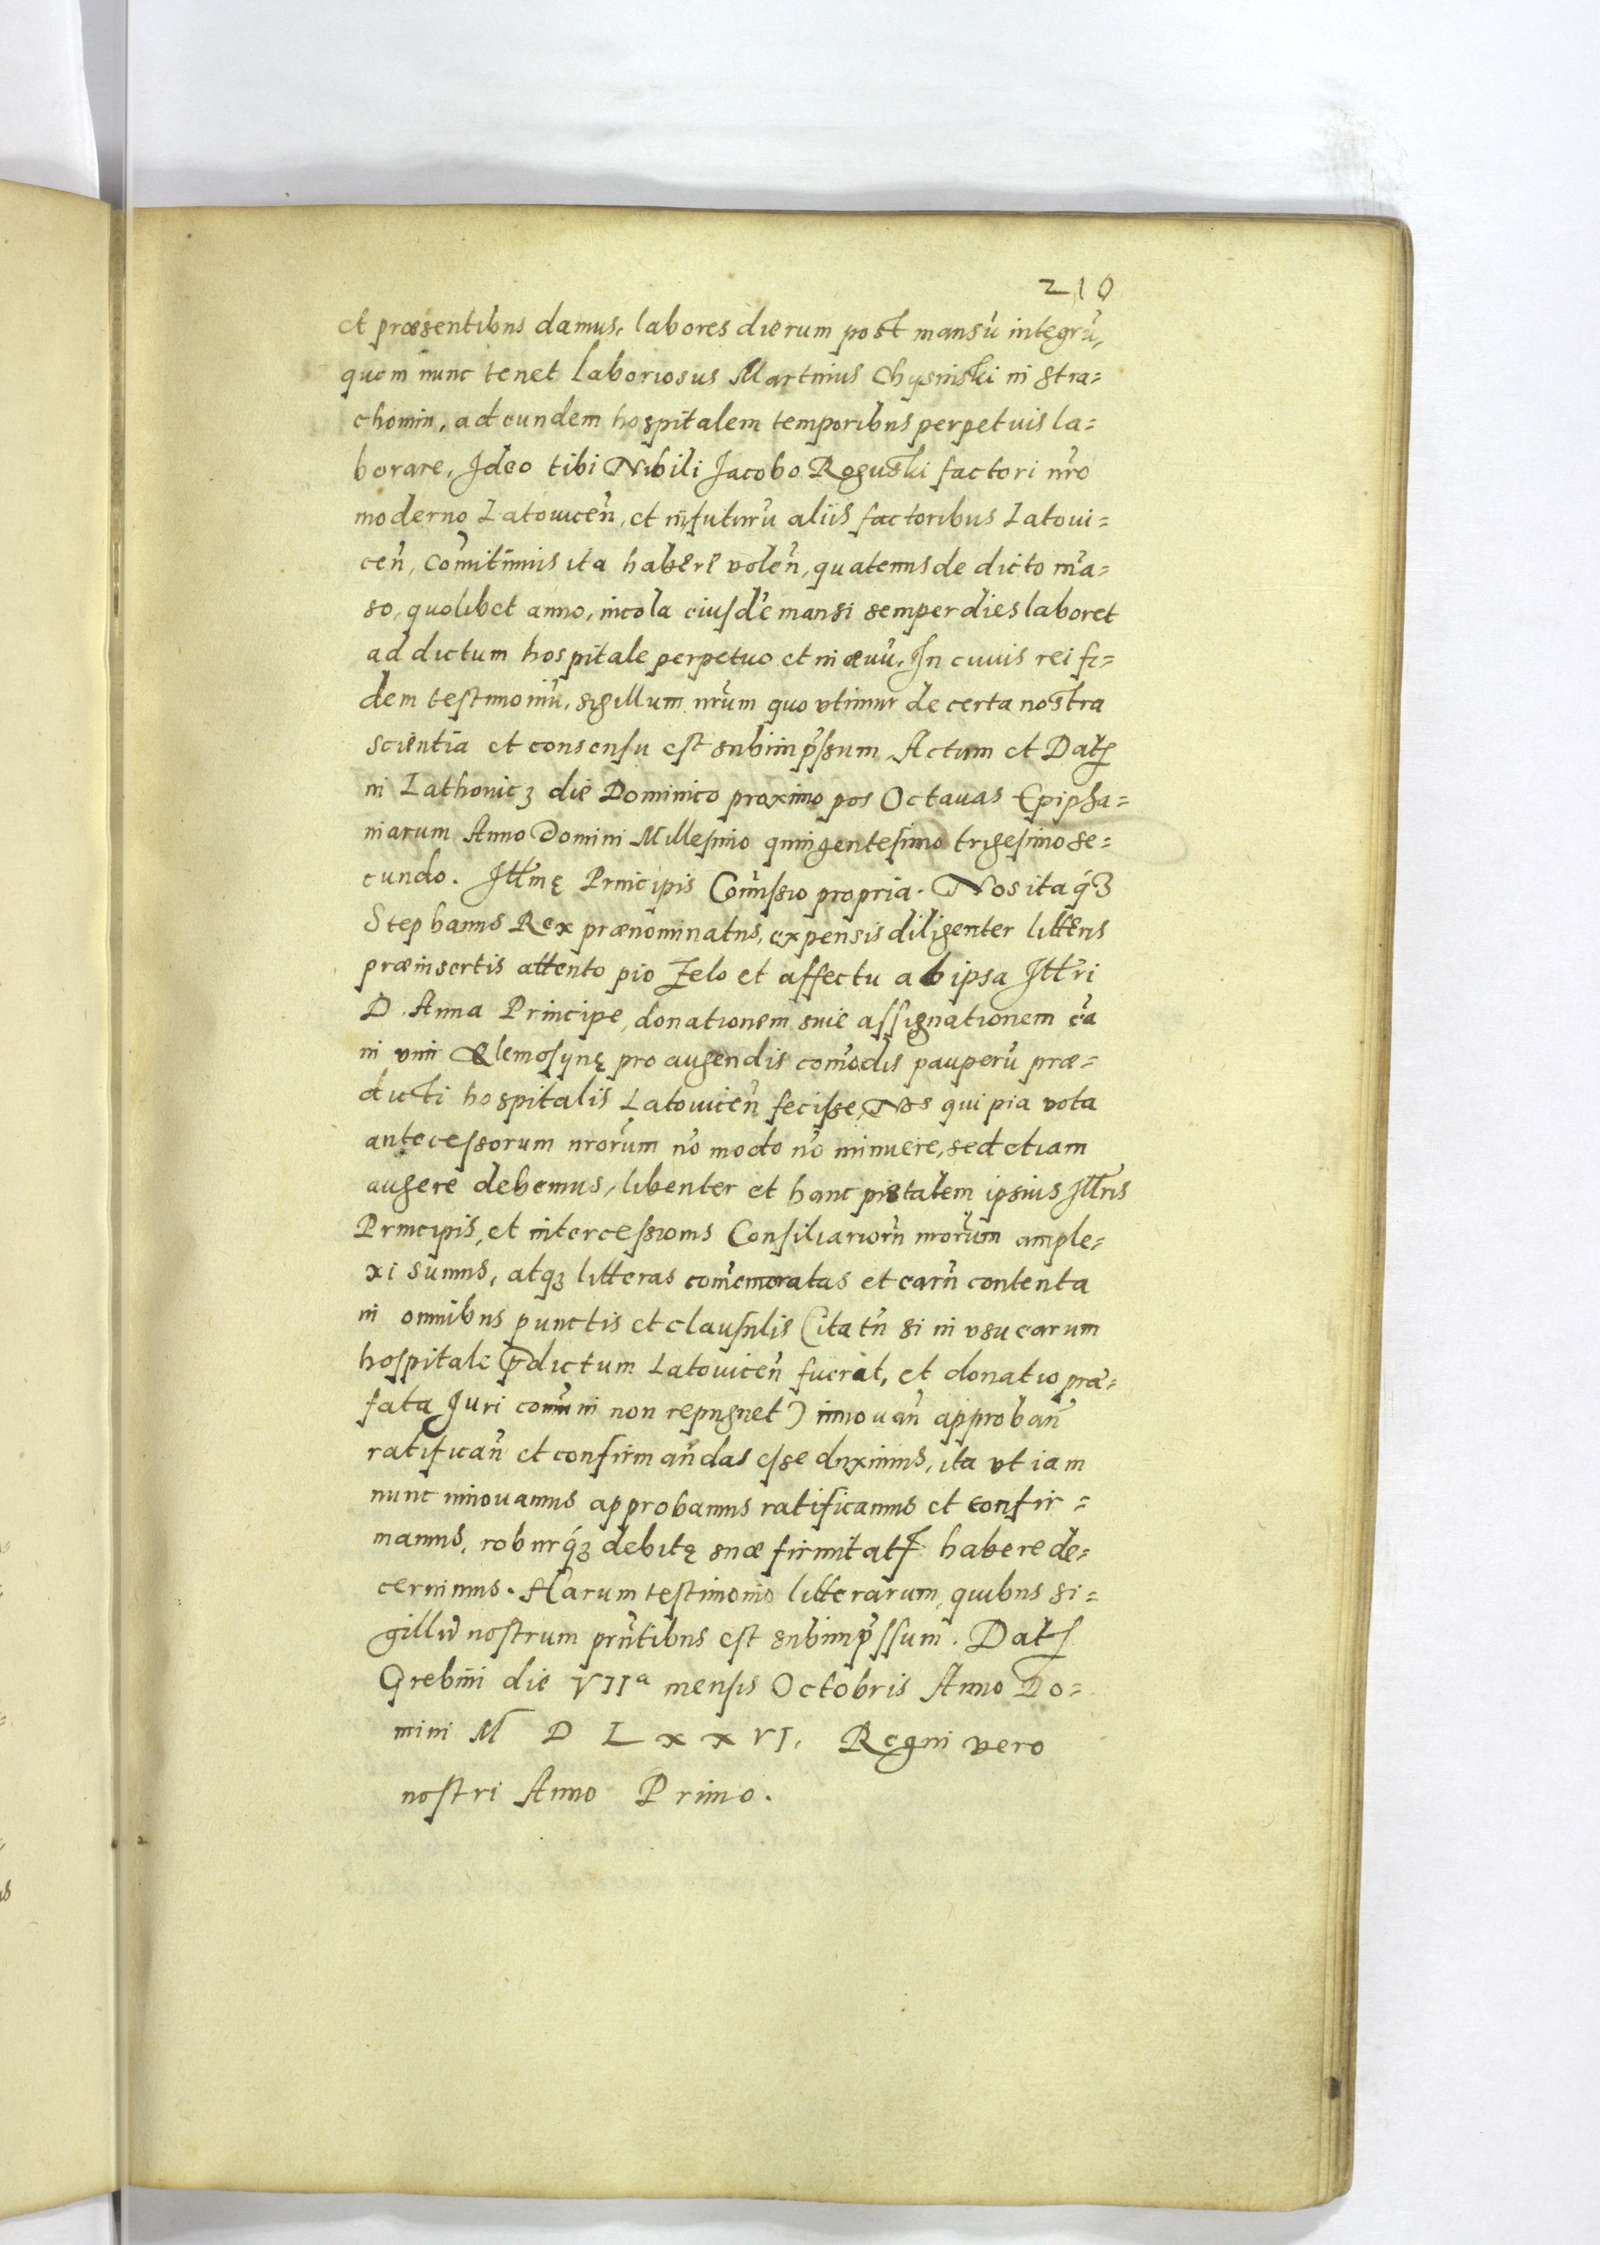 210
et præsentibus damus, labores dierum post mansũ integrũ,
quem nunc tenet laboriosus Martinus Chysinski in Stra=
chomin, ad eundem hospitalem temporibus perpetuis la=
borare, Ideo tibi Nibili Jacobo Roguski factori nr̃o
moderno Latouiceñ, et in futurũ aliis factoribus Latoui=
ceñ, Com̃ittimus ita habere voleñ, quatenus de dicto mã=
so, quolibet anno, incola eiusdẽ mansi semper dies laboret
ad dictum hospitale perpetuo et in æuũ. In cuius rei fi=
dem testimoniũ, sigillum nr̃um quo vtimur de certa nostra
scientia et consensu est subimp̃ssum Actum et Datȝ
in Lathouicȝ die Dominico proximo pos Octauas Epipha=
niarum Anno Domini Millesimo quingentesimo trigesimo se=
cundo. Ill̃mę Principis Com̃issio propria. Nos itaqȝ
Stephanus Rex prænominatus, expensis diligenter litteris
præinsertis attento pio Zelo et affectu ab ipsa Ill̃ri
D. Anna Principe, donationem siue assignationem eã
in vim Elemosynę pro augendis com̃odis pauperũ præ=
dicti hospitalis Latouiceñ fecisse, Nos qui pia vota
antecessorum nror̃um nõ modo nõ minuere, sed etiam
augere debemus, libenter et hanc pietatem ipsius Ill̃ris
Principis, et intercessionis Consiliariorũ nror̃um ample=
xi sumus, atqȝ litteras com̃emoratas et earũ contenta
in omnibus punctis et clausulis (ita tñ si in vsu earum
hospitale p̃dictum Latouiceñ fuerit, et donatio præ=
fata Juri com̃uni non repugnet) innouañ approbañ
ratificañ et confirmañdas esse duximus, ita vt iam
nunc innouamus approbamus ratificamus et confir=
mamus, roburqȝ debitę suæ firmitatȝ habere de=
cernimus. Harum testimonio litterarum, quibus si=
gillũ nostrum prñtibus est subimp̃ssum. Datȝ
Grebini die VIIᵃ mensis Octobris Anno Do=
mini M D L x x VI. Regni vero
nostri Anno Primo.